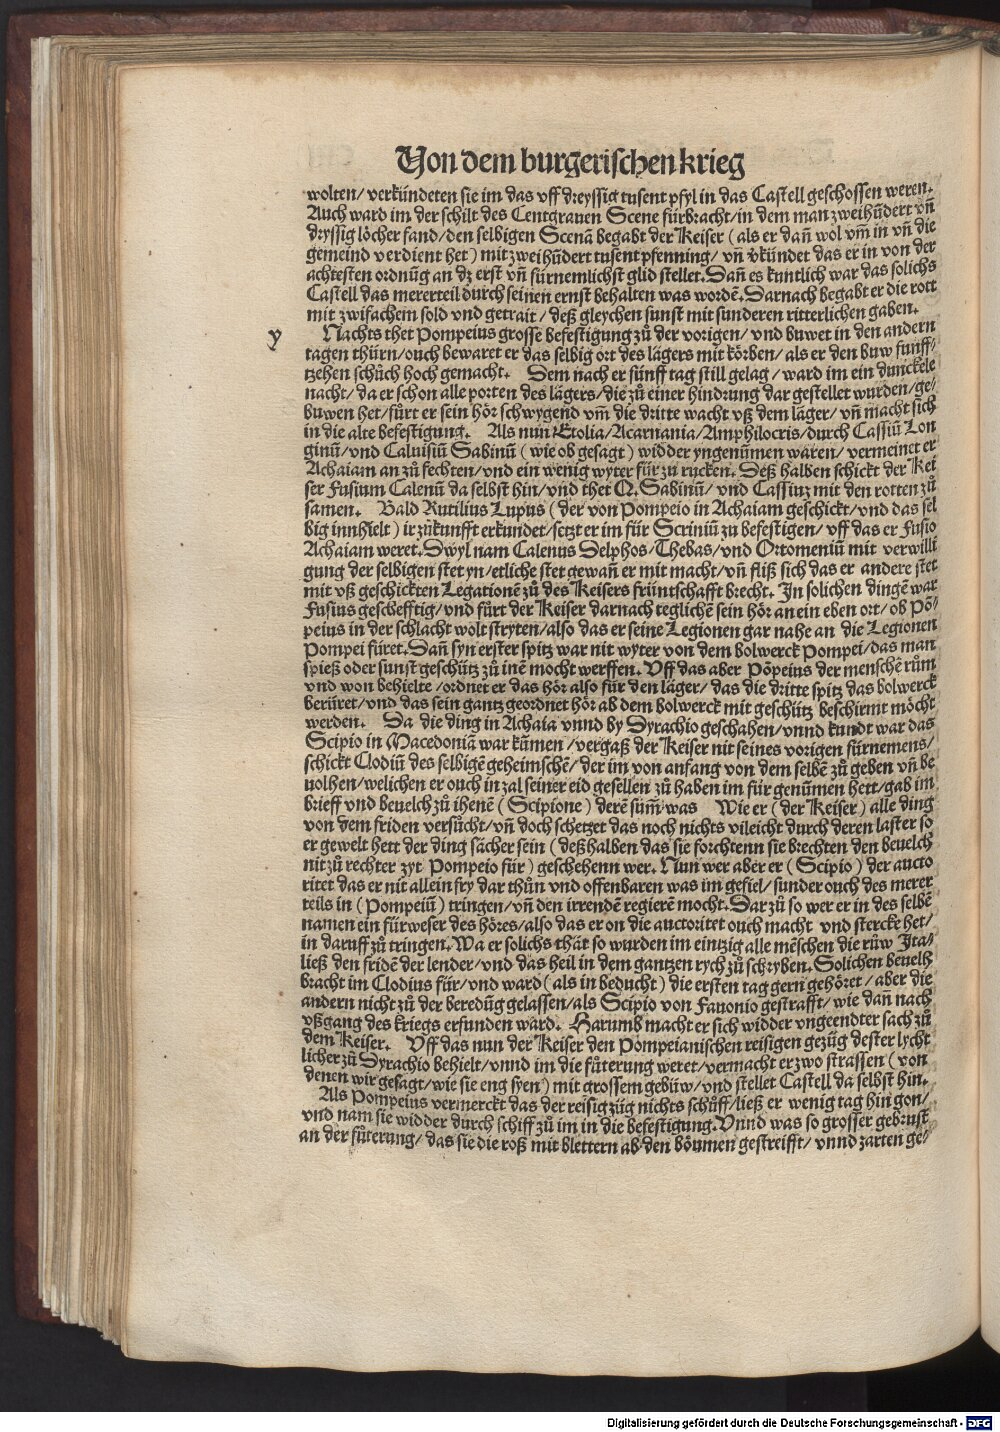 Von dem burgerischen krieg
wolten/ verkündeten sie im das vff dreyssig tusent pfyl in das Castell geschossen weren.
Auch ward im der schilt des Centgrauen Scene fürbracht/in dem man zweihūdert vñ
dryssig löcher fand/den selbigen Scenā begabt der Keiser (als er dañ wol vm̄ in vñ die
gemeind verdient het) mit zweihūdert tusent pfenning/ vñ vkündet das er in von der
achtesten ordnūg an dz erst vñ fürnemlichst glid stellet. Dañ es kuntlich war das solichs
Castell das mererteil durch seinen ernst behalten was wordē. Darnach begabt er die rott
mit zwifachem sold vnd getrait/ deß gleychen sunst mit sunderen ritterlichen gaben.
y
Nachts thet Pompeius grosse befestigung zů der vorigen/ vnd buwet in den andern
tagen thürn/ouch bewaret er das selbig ort des lägers mit körben/als er den buw funff⸗
tzehen schůch hoch gemacht. Dem nach er fünff tag still gelag/ ward im ein dunckele
nacht/da er schon alle porten des lägers/die zů einer hindrung dar gestellet wurden/ge⸗
buwen het/fůrt er sein hör schwygend vm̄ die dritte wacht vß dem läger/ vñ macht sich
in die alte befestigung. Als nun Etolia/Acarnania/Amphilocris/durch Cassiū Lon
ginū/vnd Caluisiū Sabinū (wie ob gesagt) widder yngenūmen waren/ vermeinet er
Achaiam an zů fechten/vnd ein wenig wyter für zu rucken. Deß halben schickt der Kei
ser Fusium Calenū da selbst hin/vnd thet Q. Sabinū/ vnd Cassiuz mit den rotten zů
samen. Bald Rutilius Lupus (der von Pompeio in Achaiam geschickt/vnd das sel
big innhielt) ir zůkunfft erkundet/setzt er im für Scriniū zu befestigen/ vff das er Fusio
Achaiam weret. Dwyl nam Calenus Delphos/Thebas/vnd Ortomeniū mit verwilli
gung der selbigen stet yn/etliche stet gewañ er mit macht/vñ fliß sich das er andere stet
mit vß geschickten Legationē zů des Keisers früntschafft brecht. In solichen dingē war
Fusius gescheftig/vnd fůrt der Keiser darnach teglichē sein hör an ein eben ort/ob Pō⸗
peius in der schlacht wolt stryten/also das er seine Legionen gar nahe an die Legionen
Pompei fůret. Dañ syn erster spitz war nit wyter von dem bolwerck Pompei/das man
spieß oder sunst geschütz zů inē mocht werffen. Vff das aber Pōpeius der menschē rům
vnd won behielte/ordnet er das hör also für den läger/ das die dritte spitz das bolwerck
berüret/vnd das sein gantz geordnet hör ab dem bolwerck mit geschütz beschirmt möcht
werden. Da die ding in Achaia vnnd by Dyrachio geschahen/vnnd kundt war das
Scipio in Macedoniā war kūmen/vergaß der Keiser nit seines vorigen fürnemens/
schickt Clodiū des selbigē geheimschē/ der im von anfang von dem selbē zů geben vñ be
uolhen/welichen er ouch in zal seiner eid gesellen zů haben im für genūmen hett/gab im
brieff vnd beuelch zů ihenē (Scipione) derē sum̄ was Wie er (der Keiser) alle ding
von dem friden versůcht/vñ doch schetzet das noch nichts vileicht durch deren laster so
er gewelt hett der ding sächer sein (deßhalben das sie forchtenn sie brechten den beuelch
nit zů rechter zyt Pompeio für) geschehenn wer. Nun wer aber er (Scipio) der aucto
ritet das er nit allein fry dar thůn vnd offenbaren was im gefiel/sunder ouch des merer
teils in (Pompeiū) tringen/vñ den irrendē regierē mocht. Dar zů so wer er in des selbē
namen ein fürweser des höres/also das er on die auctoritet ouch macht vnd stercke het/
in daruff zů tringen. Wa er solichs thät so wurden im eintzig alle mēschen die růw Ita⸗
ließ den fridē der lender/vnd das heil in dem gantzen rych zů schryben. Solichen beuelh
bracht im Clodius für/vnd ward (als in beducht) die ersten tag gern gehöret/ aber die
andern nicht zů der beredūg gelassen/als Scipio von Fauonio gestrafft/ wie dañ nach
vßgang des kriegs erfunden ward. Harumb macht er sich widder vngeendter sach zů
dem Keiser. Vff das nun der Keiser den Pompeianischen reisigen gezüg dester lycht
licher zů Dyrachio behielt/vnnd im die fůterung weret/vermacht er zwo strassen (von
denen wir gesagt/wie sie eng syen) mit grossem gebüw/vnd stellet Castell da selbst hin.
Als Pompeius vermerckt das der reisig züg nichts schůff/ließ er wenig tag hin gon/
vnd nam sie widder durch schiff zů im in die befestigung. Vnnd was so grosser gebrust
an der fůterung/das sie die roß mit blettern ab den böumen gestreifft/vnnd zarten ge⸗
Digitalisierung gefördert durch die Deutsche Forschungsgemeinschaft - DFG